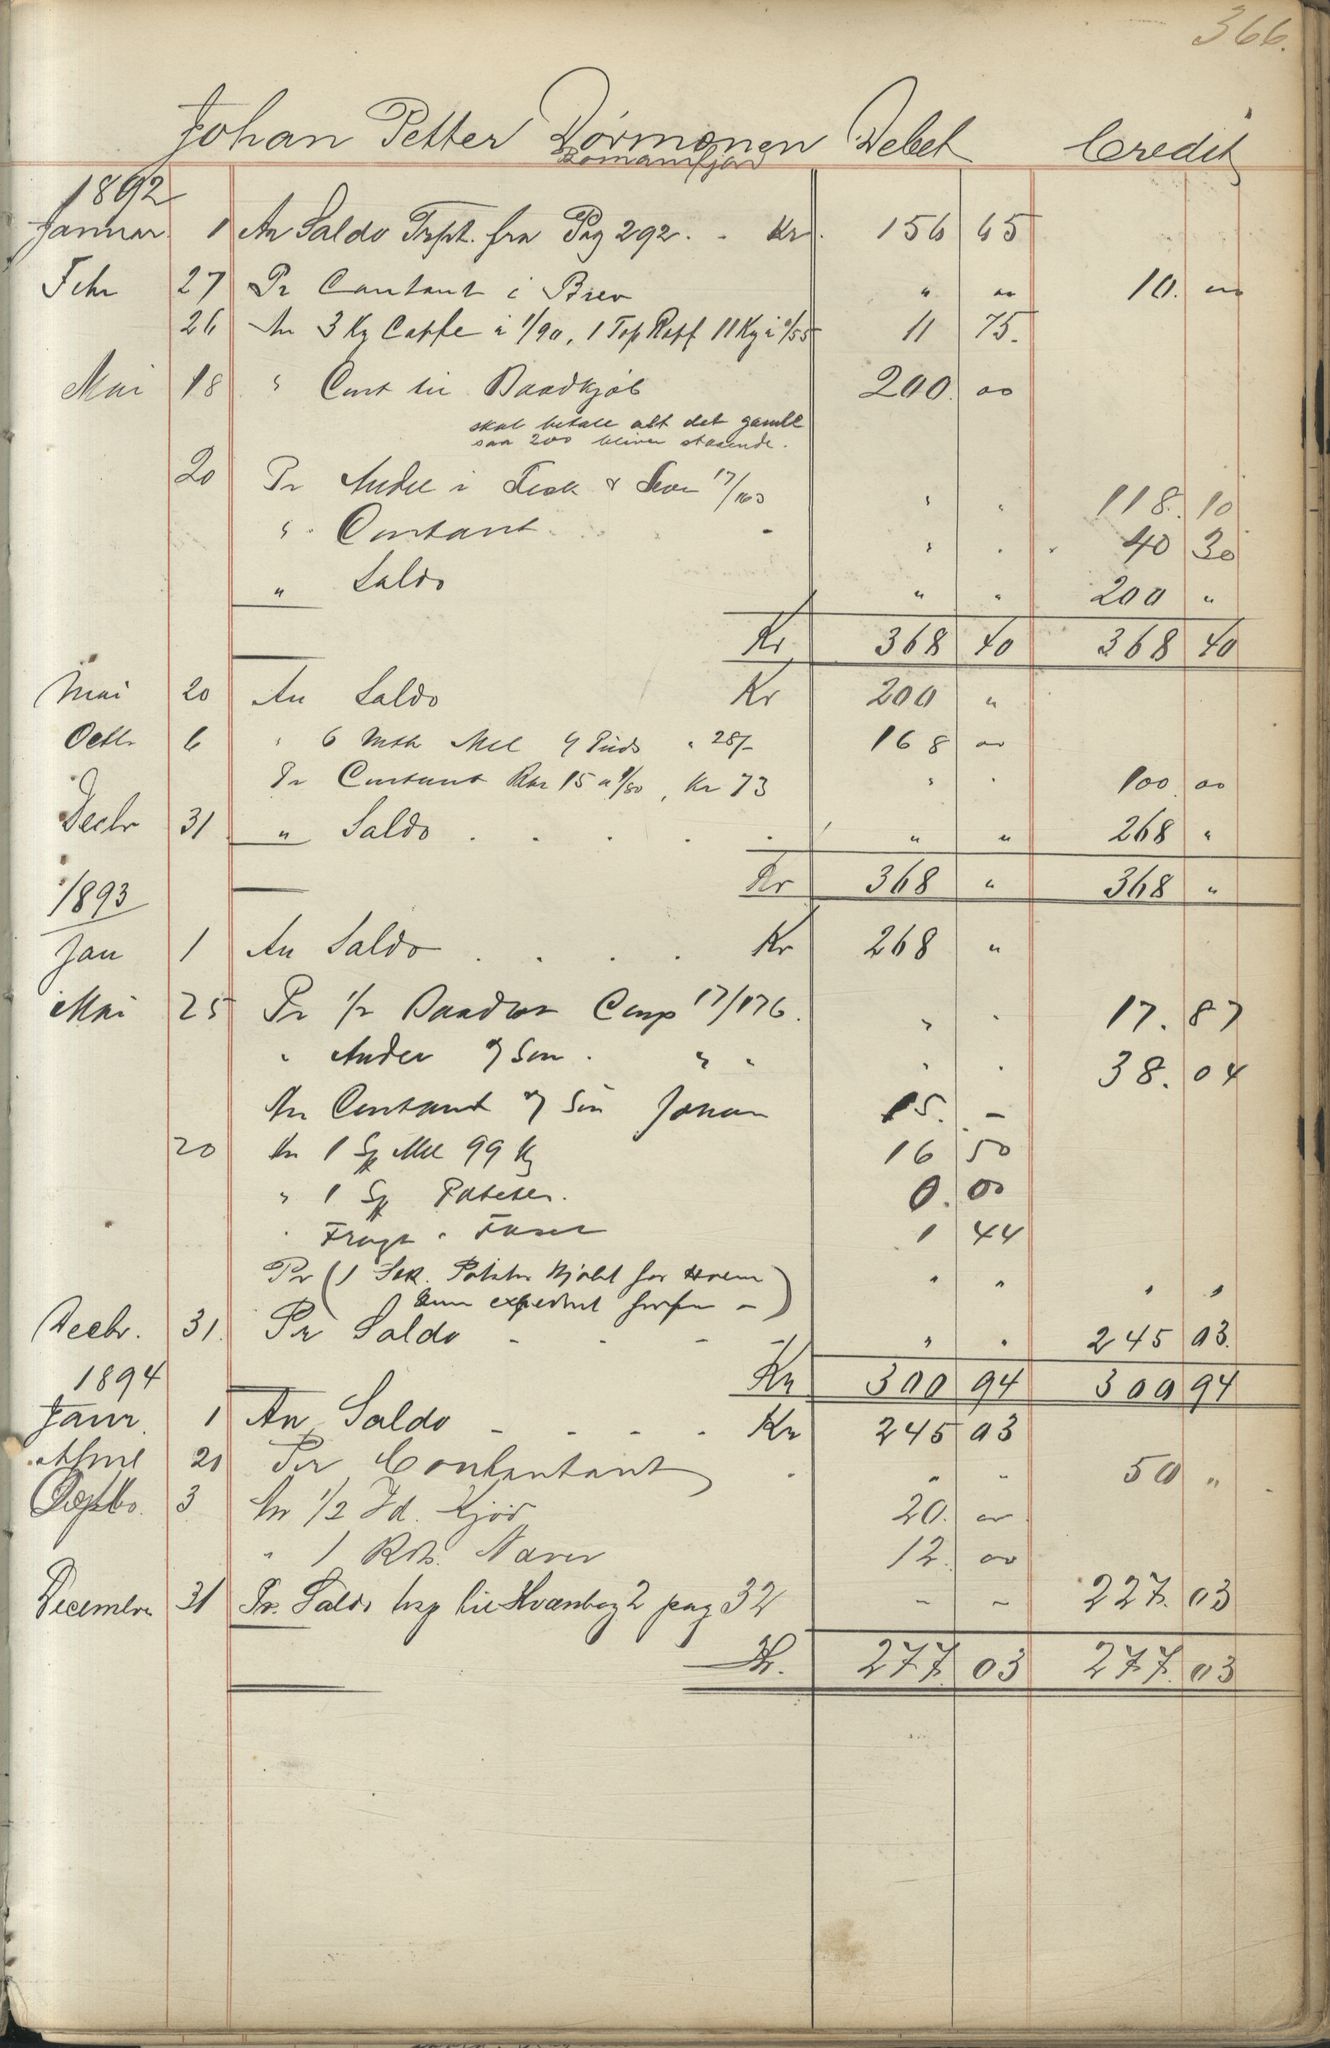 366.
Johan Petter Dørmonen Debet Credit
Bomansfjord
1892
Januar 1 An Saldo Trpt. fra Pag 292. - Kr. 156 65
Febr 27 Pr Contant i Brev " " 10. 00
26 An 3 Kg Caffe à 1/90, 1 Top Raff 11 Kg à 0/55 11 75.
Mai 18 " Cont til Baadkjøb 200. 00
skal betale alt det gamle
saa 200 bliver staaende.
20 Pr Andel i Fisk & 17/163 " " 118. 10
" Contant - " " 40 30
" Saldo " " 200 "
Kr 368 40 368 40
Mai 20 An Saldo Kr 200 "
Octbr 6 " 6 Mtr Mel 9 Puds " 28/- 168 00
Pr Contant Rbl 15 a 1/80, Kr 73 " " 100. 00
Decbr 31 " Saldo . . . . . " " 268 "
Kr 368 " 368 "
1893
Jan 1 An Saldo . . . . Kr 268 "
Mai 25 Pr 1/2 Comp 17/176. " " 17. 87
" Andel af Søn. " " " " 38. 04
An Contant af Søn Johan 15. -
20 An 1 Sæk Mel 99 Kg 16 50
" 1 Sæk Poteter. 0. 00
" Fragt " 1 44
Pr (1 Sæk. Poteter kjøbt for
expedient -) " " " "
Decbr. 31. Pr Saldo - - - - " " 245 03.
1894 Kr 300 94 300 94
Janr. 1 An Saldo - - - . Kr 245 03
April 20 Pr Contentant . " " 50 "
Septbr. 3 An 1/2 Td. Kjød 20. 00
" 1 Rts. Naver 12. 00
December 31 Pr. Saldo trsp til Hvænbog 2 pag 32 - - 227. 03
Kr. 277. 03 277. 03